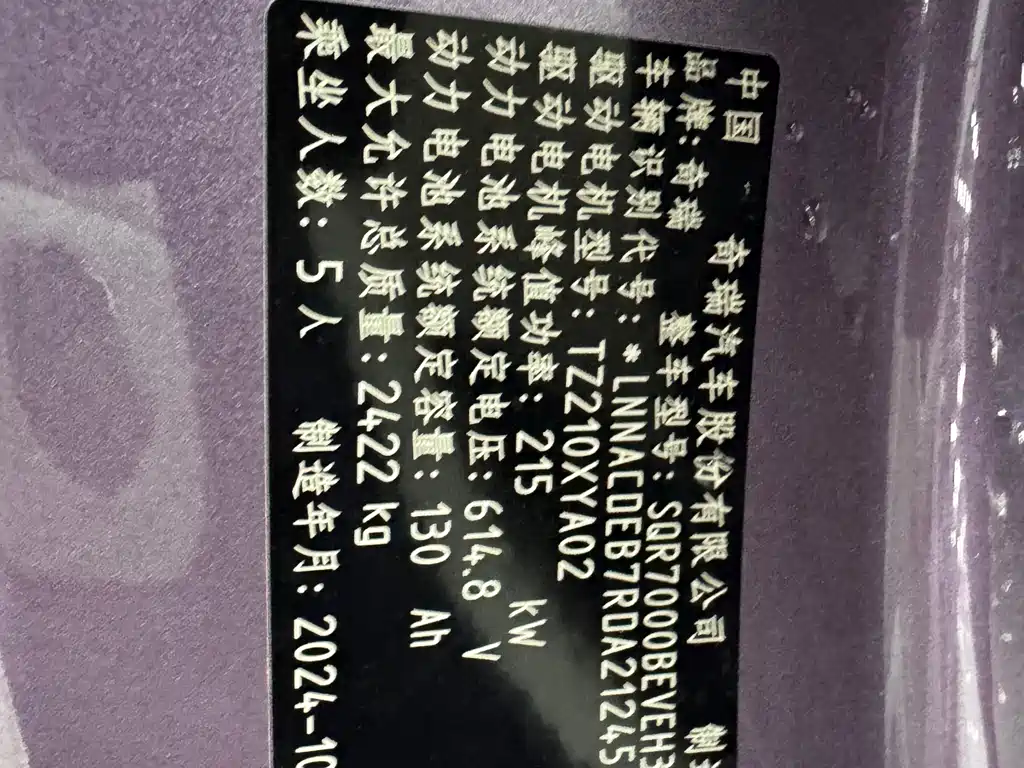 中国 奇瑞汽车股份有限公司 制
品牌:奇瑞 整车型号: SQR7000BEVEH3
车辆识别代号: *LNNACDEB7RDA21245
驱动电机型号: TZ210XYA02
驱动电机峰值功率: 215 kW
动力电池系统额定电压: 614.8 V
动力电池系统额定容量: 130 Ah
最大允许总质量: 2422 kg
乘坐人数: 5人 制造年月: 2024-10